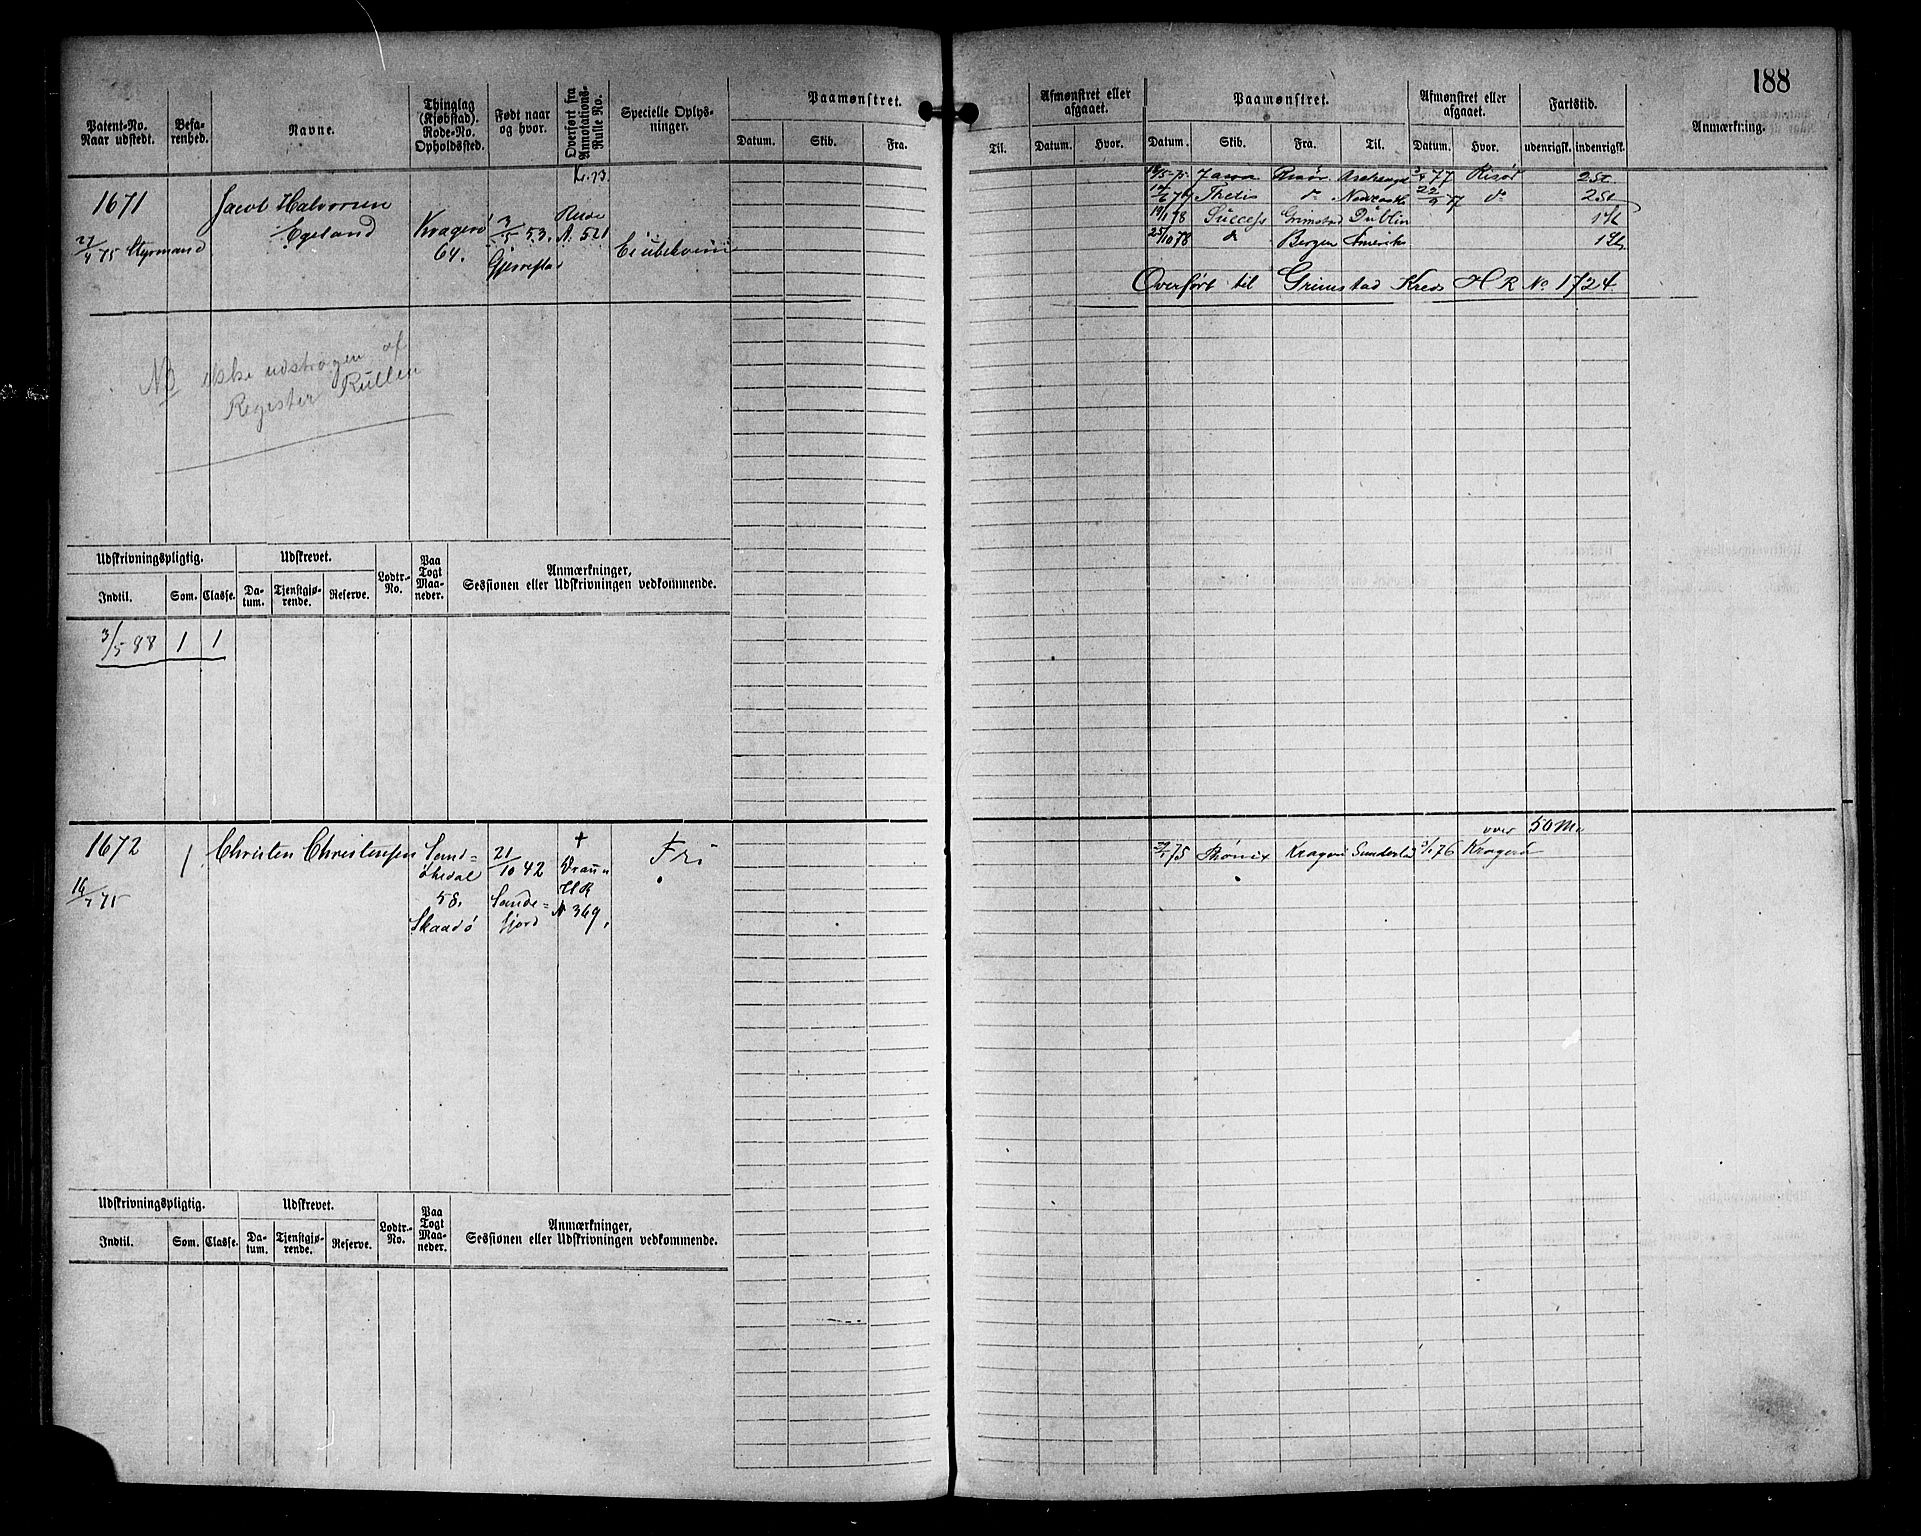 188
Patent-No.
Naar udstedt.
Befa-
renhed.
Navne.
Thinglag
(Kjøbstad).
Rode-No.
Opholdssted.
Født naar
og hvor.
Overført fra
Annotations-
Rulle No.
Specielle Oplys-
ninger.
Paamønstret.
Datum. Skib. Fra.
Til.
Afmønstret eller
afgaaet.
Datum. Hvor.
Paamønstret.
Datum. Skib. Fra. Til.
Afmønstret eller
afgaaet.
Datum. Hvor.
Fartstid.
udenrigsk. indenrigsk.
Anmærkning.
1671
27/4 75 Styrmand
Jacob Halvorsen
Egeland
Kragerø
64.
3/5 53.
Gjerrestad
A. 521
77 Risør
Thetis
19/1 78 Success Grimstad Dublin
25/10 78 Bergen Amerika
Overført til Grimstad Kreds H R No 1724.
NB ikke udstrøgen af
Register Rullen
Udskrivningspligtig.
Indtil. Som. Classe.
Udskrevet.
Da-
tum.
Tjenstgjø-
rende.
Reserve.
Lodtr.-
No.
Paa
Togt
Maa-
neder.
Anmærkninger,
Sessionen eller Udskrivningen vedkommende.
3/5 88 1 1
1672
1
Christen Christensen
Sand=
økedal
58.
Skaadø
21/10 42
Sande=
fjord
+
HR
N 369.
Fri
over 50 M
75 Kragerø Sunderland 76 Kragerø
Udskrivningspligtig.
Indtil. Som. Classe.
Udskrevet.
Da-
tum.
Tjenstgjø-
rende.
Reserve.
Lodtr.-
No.
Paa
Togt
Maa-
neder.
Anmærkninger,
Sessionen eller Udskrivningen vedkommende.